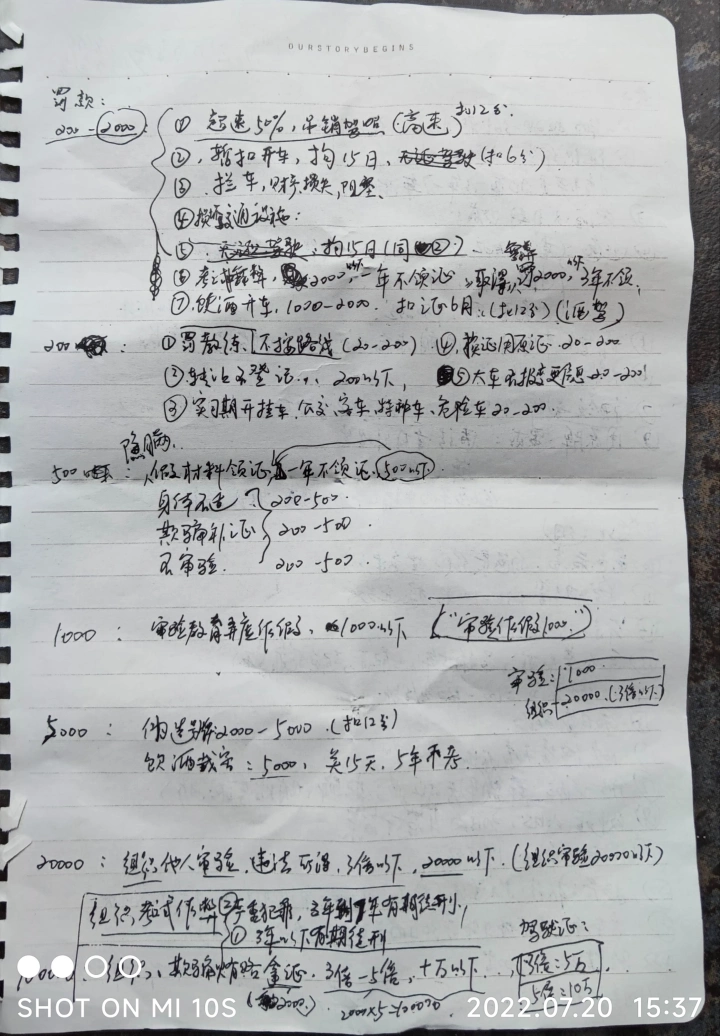 OURSTORYBEGINS
罚款:
200-2000:
① 超速50%,吊销驾照(高速)扣12分.
②,暂扣开车,拘15日,无证驾驶(扣6分)
③.拦车,财产损失,阻塞、
④损坏交通设施:
⑤.无证驾驶:拘15日(同②)
⑥考试舞弊,2000以下,一年不领证,取得,罚2000以下,3年不领.
⑦.饮酒开车,1000-2000.扣证6月.(扣12分)(酒驾)
200 : ①罚教练,不按路线(20-200) ④.换证用原证.20-200
②转让不登记..,200以下, ⑤大车不报变更信息.20-200
③实习期开挂车.公交.客车.特种车、危险车20-200.
隐瞒.
500 : 假材料领证,一年不领证.500以下.
身体不适 200-500.
欺骗补证 200-500.
不审验. 200-500.
1000 : 审验教育弄虚作假、1000以下 ("审验作假1000".)
审验:1000
组织-20000.(3倍以下)
5000 : 伪造2000-5000.(扣12分)
饮酒载客:5000,关15天,5年不考.
20000 : 组织他人审验,违法所得,3倍以下,20000以下.(组织审验20000以下)
组织考试作弊 ②严重犯罪,3年到7年有期徒刑,
① 3年以下有期徒刑
驾驶证:
组织、欺骗贿赂拿证.3倍-5倍,十万以下.
3倍=5万
5倍=10万
SHOT ON MI 10S
2022.07.20 15:37